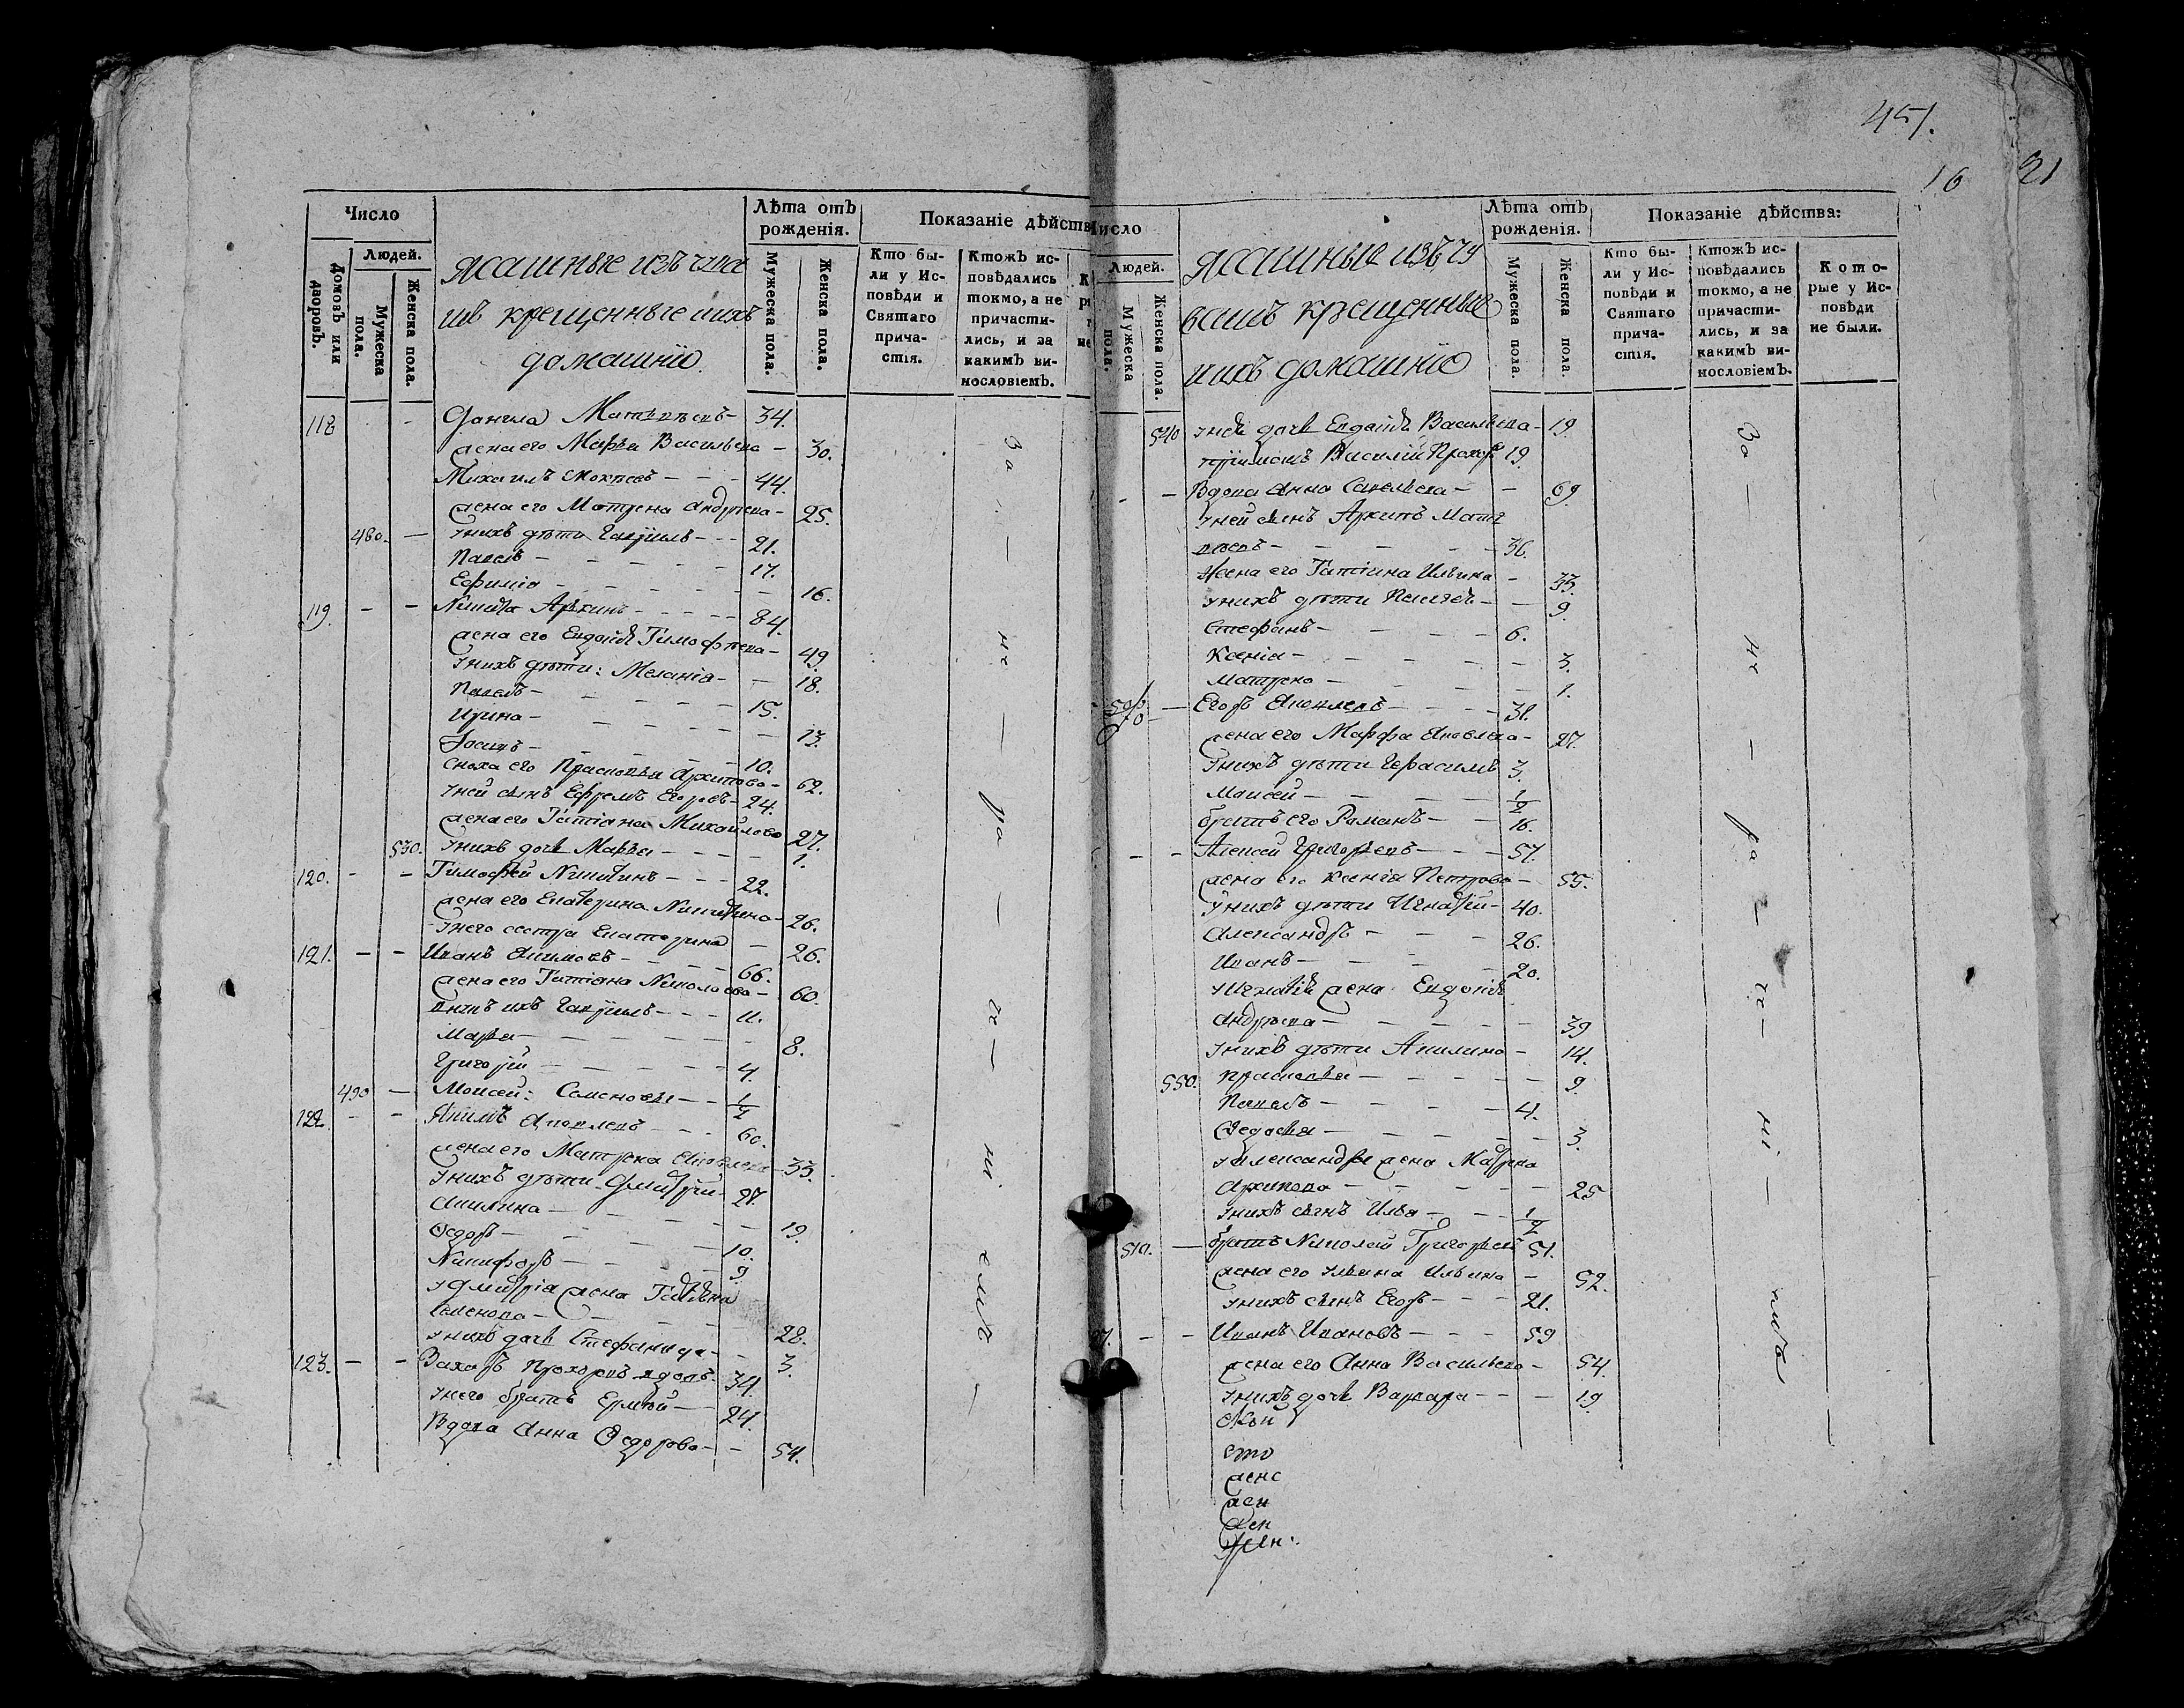 451.
16 21
Число
Людей.
Домовъ или дворовъ.
Мужеска пола.
Женска пола.
Ясашные изъ чува
шъ крещенные ихъ
домашнiе
Лѣта отъ рожденiя.
Мужеска пола.
Женска пола.
Показанiе дѣйств
Кто бы-
ли у Ис-
повѣди и
Святаго
прича-
стiя.
Ктожъ ис-
повѣдались
токмо, а не
причасти-
лись, и за
какимъ ви-
нословiемъ.
118 Данила Матвѣевъ 34.
жена его Марья Васильева 30.
Михаилъ 44.
жена его Матрена Андреева 25.
480. у нихъ дѣти Гаврiилъ 21.
Павелъ 17.
Ефимiя 16.
119. Никита 84.
жена его Евдокiя Тимофѣева 49.
у нихъ дѣти: Меланiя 18.
Павелъ 15.
Ирина 13.
Осипъ 10.
сноха его Прасковья Архипова 62.
у ней сынъ Ефремъ Егоровъ 24.
жена его Татiана Михайлова 27.
530. у нихъ дочь Марья 1.
120. Тимофей Никитинъ 22.
жена его Екатерина Никитина 26.
у него сестра Екатерина 26.
121. Иванъ Якимовъ 66.
жена его Татiана Николаева 60.
внукъ ихъ Гаврiилъ 11.
Марья 8.
Григорiй 4.
490 Моисей: Семеновъ 1/2
122. Якимъ Яковлевъ 60.
жена его Матрена Яковлева 33.
у нихъ дѣти Дмитрiй 27.
Акилина 19.
Ѳедоръ 10.
Никифоръ 9.
у Дмитрiя жена Татьяна
Семенова 28.
у нихъ дочь Стефанида 3.
123. Захаръ Прохоровъ вдовъ 34.
у него братъ Ермѣй 24.
Вдова Анна Ѳедорова 54.
За - не - ра - че - нi - емъ -
Число
Людей.
Мужеска пола.
Женска пола.
Ясашные изъ чу
вашъ крещенные
ихъ домашнiе
Лѣта отъ рожденiя.
Мужеска пола.
Женска пола.
Показанiе дѣйства:
Кто бы-
ли у Ис-
повѣди и
Святаго
прича-
стiя.
Ктожъ ис-
повѣдались
токмо, а не
причасти-
лись, и за
какимъ ви-
нословiемъ.
Кото-
рые у Ис-
повѣди
не были.
540 у ней дочь Евдокiя Васильева 19.
Василiй Прохор 19.
Вдова Анна Савельева 69.
у ней сынъ Архипъ Матѳ
вѣевъ 36.
Жена его Татiана Ильина 33.
у нихъ дѣти 9.
Стефанъ 6.
Ксенiя 3.
Матрена 1.
Егоръ Яковлевъ 31.
жена его Марфа Яковлева 27.
у нихъ дѣти Герасимъ 3.
Моисей 1/2
братъ его Романъ 16.
Алексей Григорьевъ 57.
жена его Ксенiя Петрова 55.
у нихъ дѣти Игнатiй 40.
Александръ 26.
Иванъ 20.
у Игнатiя жена Евдокiя
Андреева 39
у нихъ дѣти Акилина 14.
550. Прасковья 9.
Павелъ 4.
Ѳедосья 3.
у Александра жена Матрена
Архипова 25
у нихъ сынъ Илья 1/2
510. братъ Николай Григорьевъ 51.
жена его Ульяна Ильина 52.
у нихъ сынъ Егоръ 21.
27. Иванъ Ивановъ 59
жена его Анна Васильева 54.
у нихъ дочь Варвара 19.
За - не - ра - че - нi - емъ
жен
жен